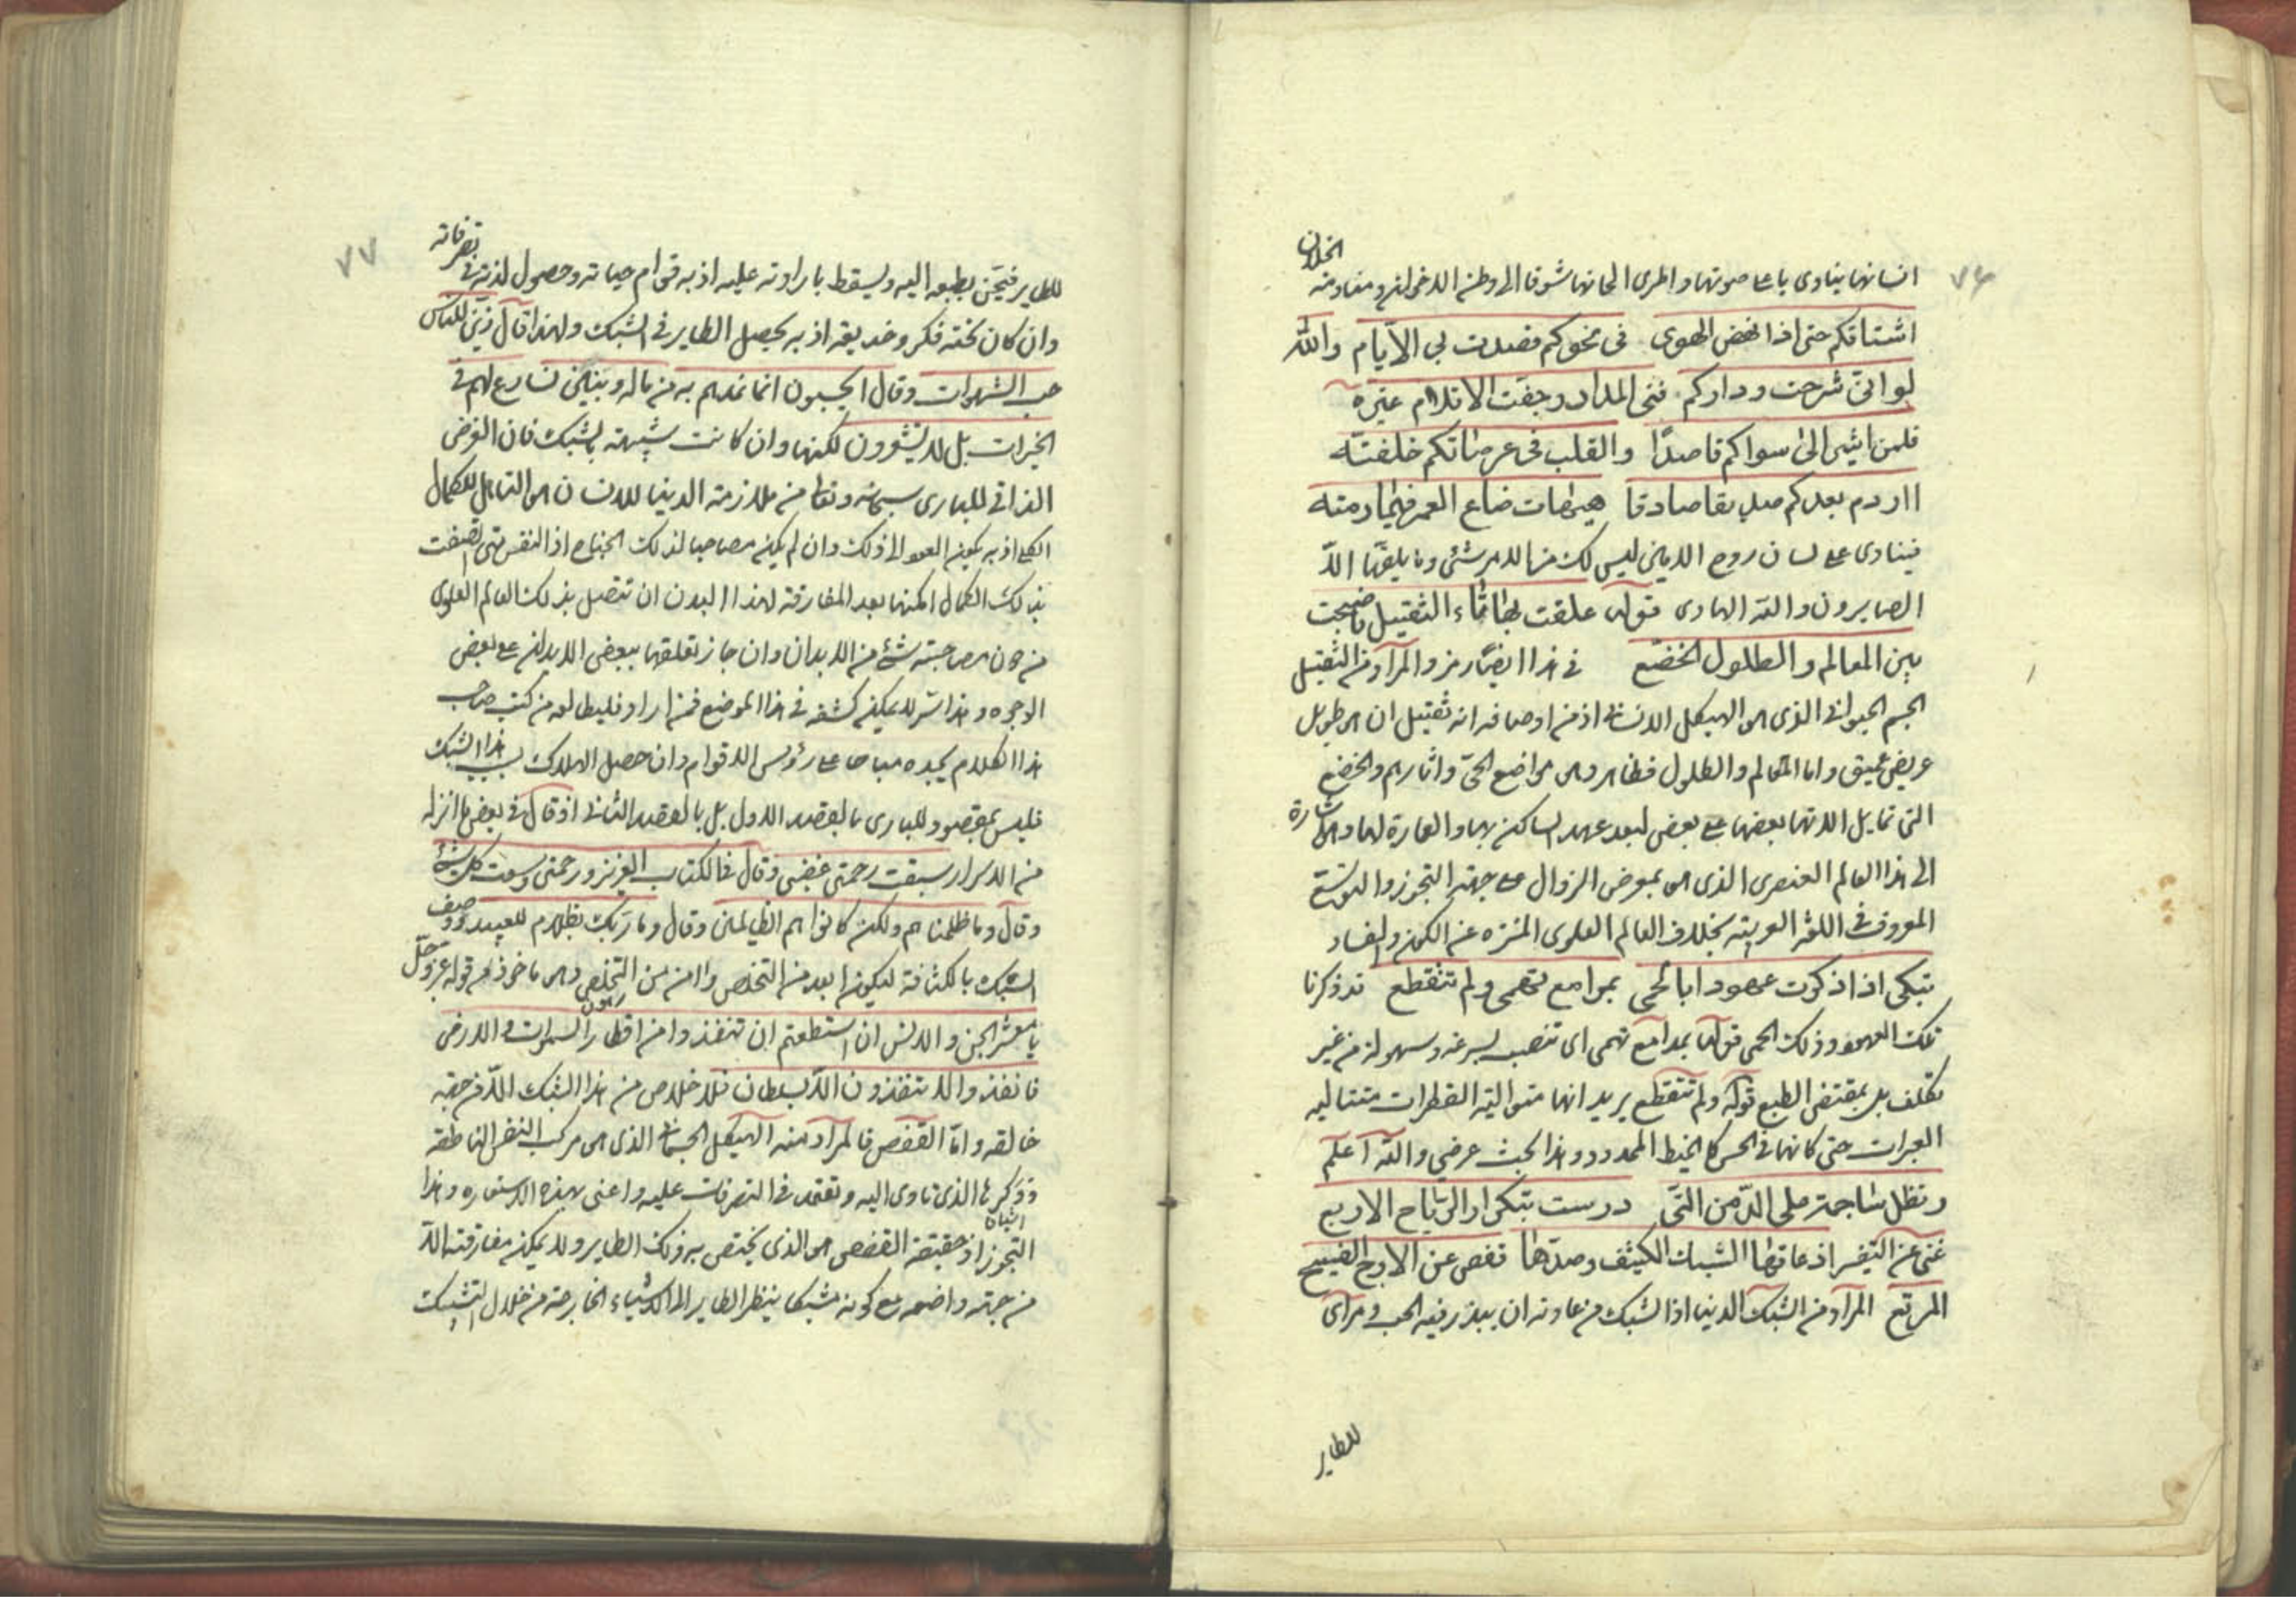 ٧٦
انسانها ينادى باعلى صوتها واطرى الحانها شوقا الى وطن الاخوان ومفاومة
الخلان
اشتاقكم حتى اذا نهض الهوى في نحوكم قصدت بي الأيام والله
لو انى شرحت ودادكم فنى المداد وجفت الاقلام غيره
فلمن ايثى الى سواكم قاصدًا والقلب في عرصاتكم خلفته
اروم بعدكم صديقا صادقا هيهات ضاع العمر فيما رمته
فينادى على لسان روح الامين ليس لك من الامر شئ وما يلقّها الاّ
الصابرون والله الهادى قوله علقت بها ثاء الثقيل فاصبحت
بين المعالم والطلول الخضّع في هذا ايضًا رمز والمراد من الثقيل
الجسم الحيوانى الذى هو الهيكل الانسانى اذ من اوصافه انه ثقيل اى طويل
عريض عميق واما المعالم والطلول فظاهر وهى مواضع الحىّ واثارهم والخضع
التى تمايل الاتها بعضها على بعض لبعد عهد الساكن بها والعمارة لها والاشارة
الى هذا العالم العنصرى الذى هو بمعرض الزوال على جهة التجوز والتوسّع
المعروف فى اللغة العربية بخلاف العالم العلوى المنزه عن الكون والفساد
تبكى اذا ذكرت عهودا بالحمى بمدامع تهمى ولم تتقطع قد ذكرنا
تلك العهود وذلك الحمى قوله بمدامع تهمى اى تنصب بسرعة وسهولة من غير
تكلف بل بمقتضى الطبع قوله ولم تتقطع يريد انها متوالية القطرات متتالية
العبرات حتى كانها فى الحس كالخيط الممدود وهذا بحث عرضي والله اعلم
وتظل ساجعة على الدّمن التى درست بتكرار الرّياح الاربع
غنى عن التفسير اذ عاقها الشبك الكثيف وصدّها قفص عن الاوج الفسيح
المربع المراد من الشبك الدنيا اذ الشبك من عادته ان يبذر فيه الحب ومرآى
للطاير
٧٧
للطاير فيحن بطبعه اليه ويسقط بارادته عليه اذ به قوام حياته وحصول لذته في
تصرفاته
وان كان تحته فكر وخديعة اذ به يحصل الطاير في الشبك ولهذا قال زيّن للناس
حب الشهوات وقال ايحسبون انما نمدهم به من مال وبنين نسارع لهم في
الخيرات بل لا يشعرون لكنها وان كانت شبيهة بالشبك فان الغرض
الذاتى للبارى سبحانه وتعالى من ملازمة الدنيا للانسان هو التاهل للكمال
الكلى اذ به يكون العود الى ذلك وان لم يكن مصاحبا لذلك الجناح اذ النفس متى اتصفت
بذلك الكمال امكنها بعد المفارقة لهذا البدن ان تتصل بذلك العالم العلوى
من دون مصاحبته شئ من الابدان وان جاز تعلقها ببعض الابدان على بعض
الوجوه وهذا سر لا يمكن كشفه في هذا الموضع فمن اراد فليطالعه من كتب صاحب
هذا الكلام يجده مباحا على رؤس الاقوام وان حصل الهلاك بسبب هذا الشبك
فليس بمقصود للبارى بالقصد الاول بل بالقصد الثانى اذ قال في بعض ما انزله
من الاسرار سبقت رحمتى غضبى وقال في الكتاب العزيز ورحمتى وسعت كل شئ
وقال وما ظلمناهم ولكن كانوا هم الظالمين وقال وما ربّك بظلام للعبيد ووصف
الشبك بالكثافة ليكون ابعد من التخلص وامن من التخلص وهو ماخوذ من قوله عزّ وجلّ
يا معشر الجن والانس ان استطعتم ان تنفذوا من اقطار السموات والارض
فانفذوا لا تنفذون الاّ بسلطان فلا خلاص من هذا الشبك الاّ من جهة
خالقه وامّا القفص فالمراد منه الهيكل الجسمانى الذى هو مركب النفس الناطقة
ووكرها الذى تاوى اليه وتعتمد فى التصرفات عليه واعنى بهذه الاستعارة وهذا
التجوز اذ حقيقة القفص هو الذى يختص به ذلك الطاير ولا يمكن مفارقته الاّ
من جهة واضعه مع كونه مشبكا ينظر الطاير الى الاشياء الخارجة من خلال التشبك